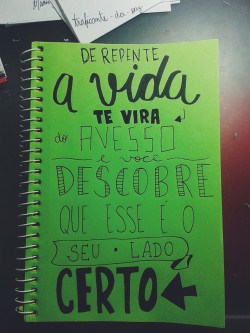 traficante-do-mg
DE REPENTE
a vida
TE VIRA
do AVESSO
e você
DESCOBRE
QUE ESSE É O
SEU • LADO
CERTO